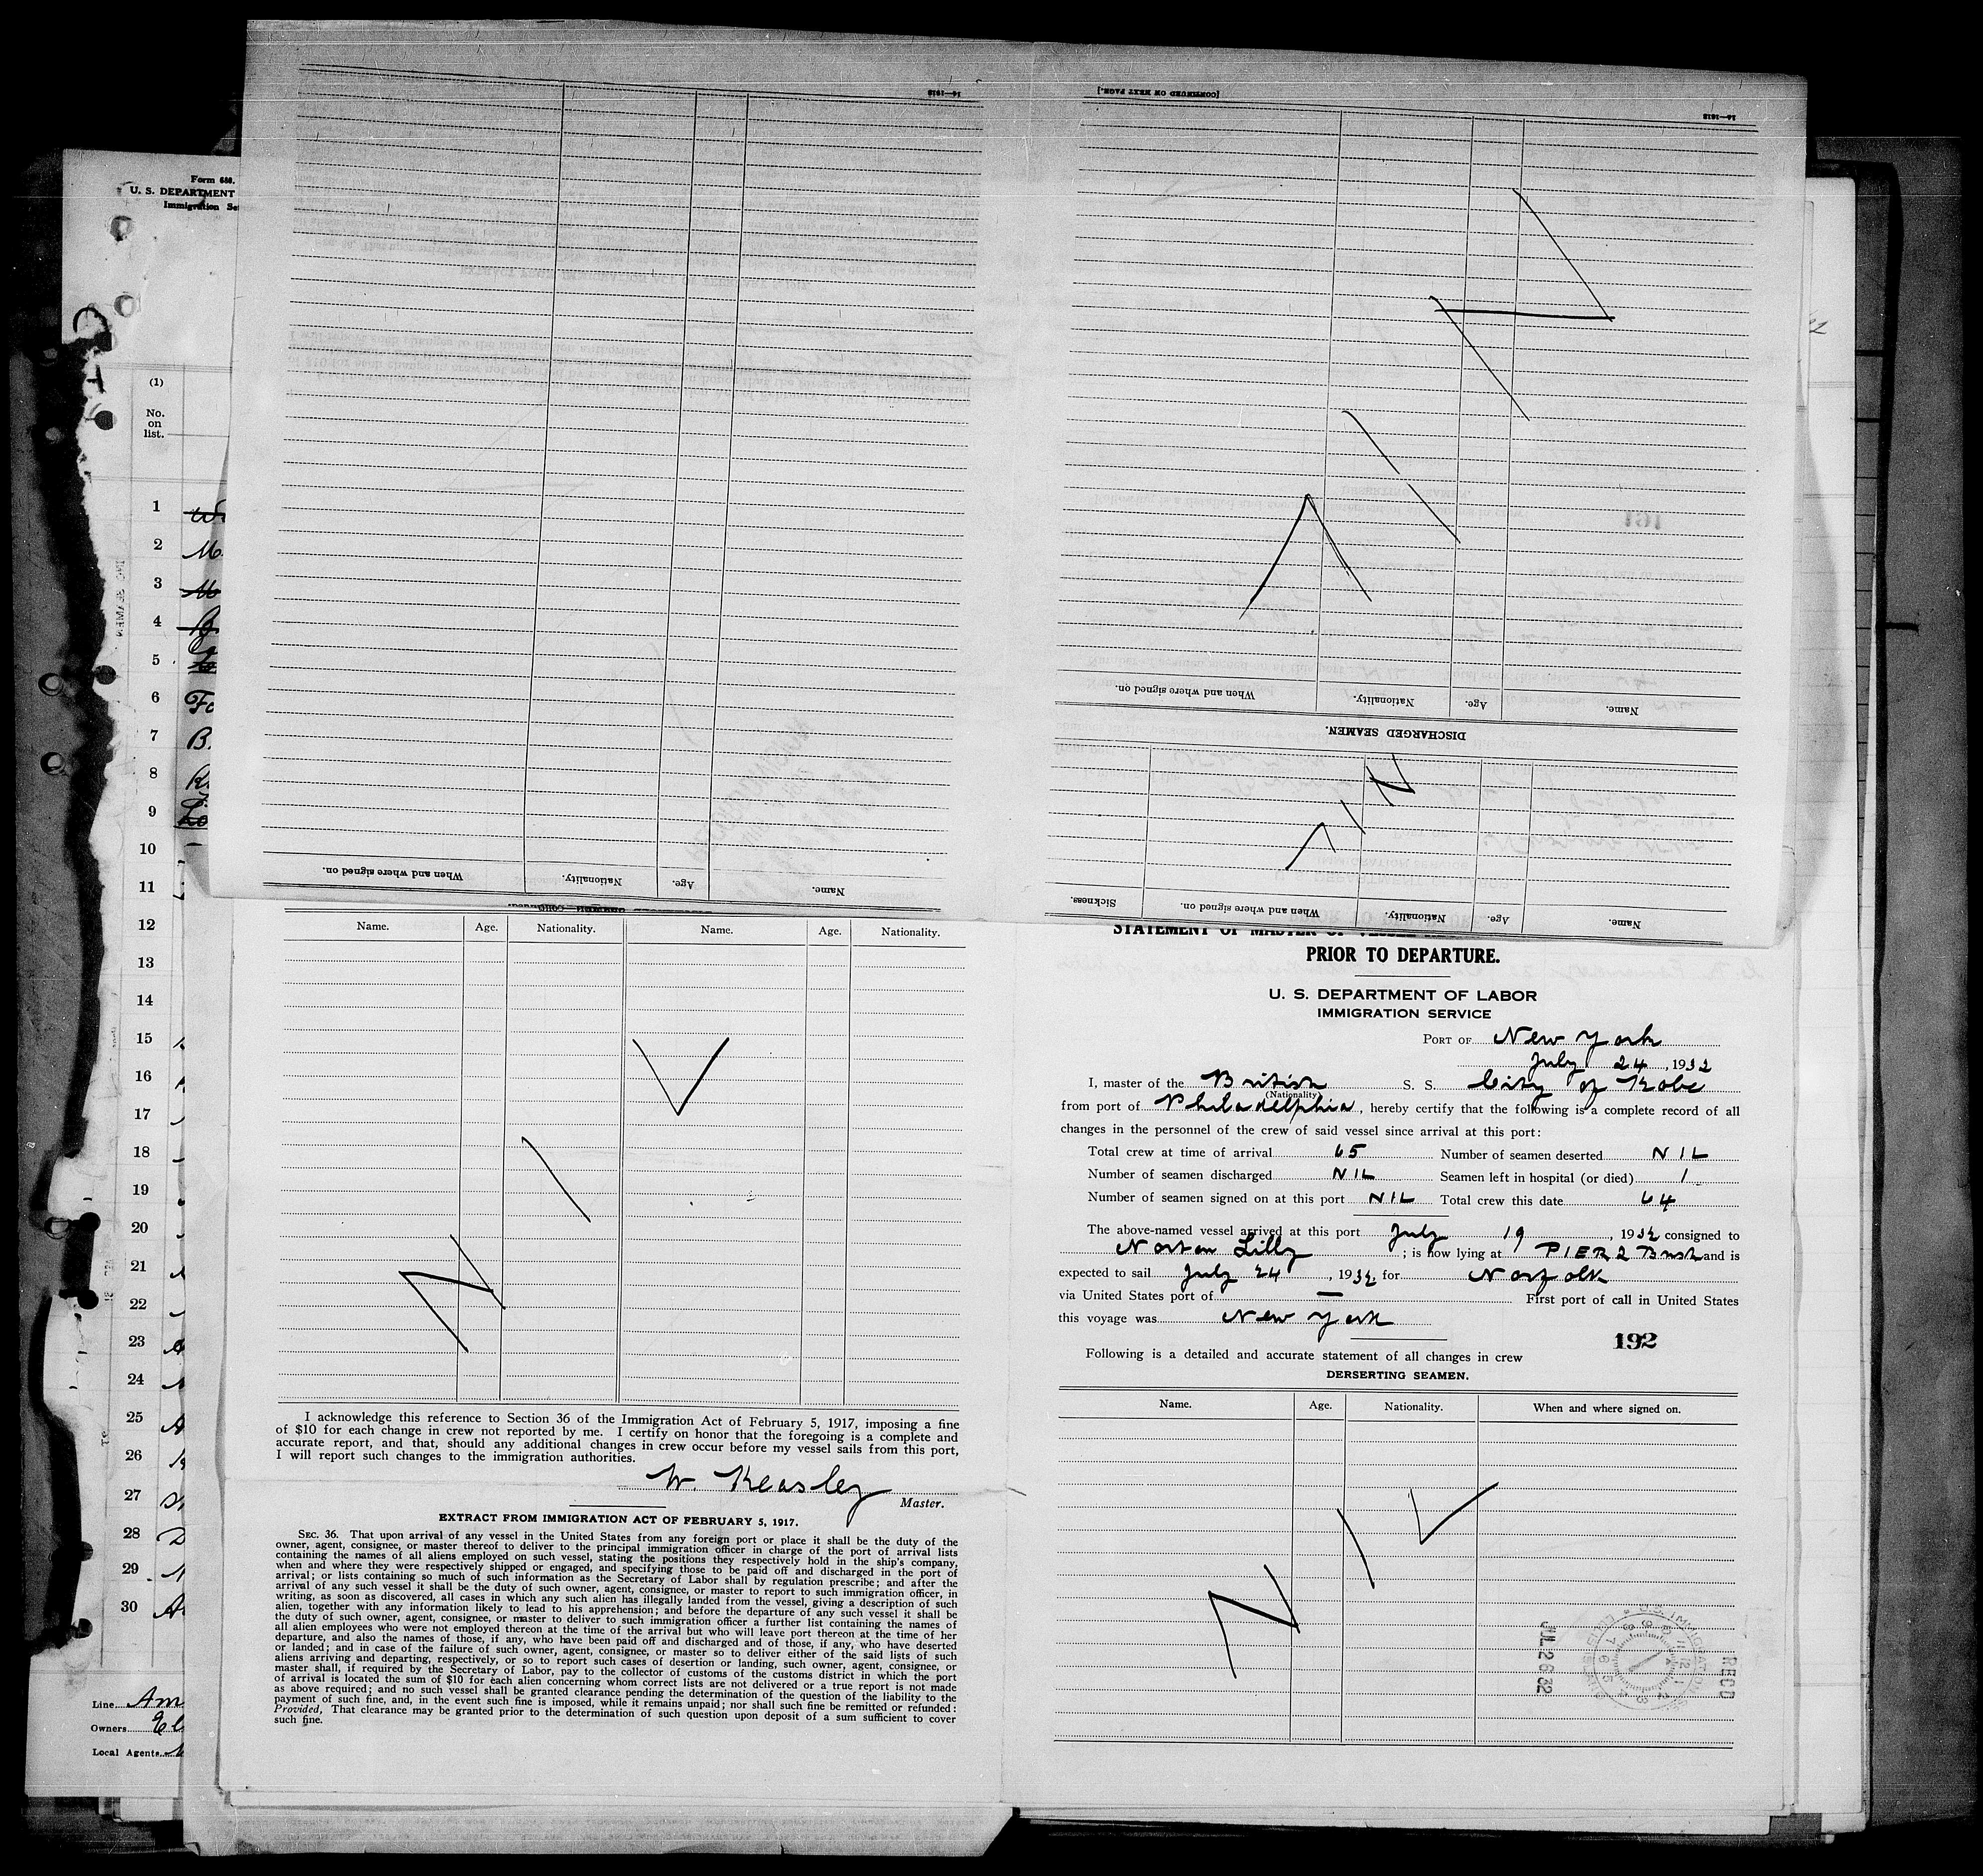 Form 680.
U. S. DEPARTMENT
Immigration Se
(1)
No.
on
list.
1
2 M.
3
4
5
6 Fo
7 B.
8
9
10
11
12
13
14
15
16
17
18
19
20
21
22
23
24
25
26
27
28
29
30
Line Am
Owners El
Local Agents
16—1618
When and where signed on.
Nationality.
Age.
Name.
[CONTINUED ON NEXT PAGE.]
16—1618
When and where signed on.
Nationality.
Age.
Name.
DISCHARGED SEAMEN.
NIL
Sickness.
When and where signed on.
Nationality.
Age.
Name.
Name. Age. Nationality. Name. Age. Nationality.
NIL
I acknowledge this reference to Section 36 of the Immigration Act of February 5, 1917, imposing a fine
of $10 for each change in crew not reported by me. I certify on honor that the foregoing is a complete and
accurate report, and that, should any additional changes in crew occur before my vessel sails from this port,
I will report such changes to the immigration authorities.
W. Keasley
Master.
EXTRACT FROM IMMIGRATION ACT OF FEBRUARY 5, 1917.
SEC. 36. That upon arrival of any vessel in the United States from any foreign port or place it shall be the duty of the
owner, agent, consignee, or master thereof to deliver to the principal immigration officer in charge of the port of arrival lists
containing the names of all aliens employed on such vessel, stating the positions they respectively hold in the ship's company,
when and where they were respectively shipped or engaged, and specifying those to be paid off and discharged in the port of
arrival; or lists containing so much of such information as the Secretary of Labor shall by regulation prescribe; and after the
arrival of any such vessel it shall be the duty of such owner, agent, consignee, or master to report to such immigration officer, in
writing, as soon as discovered, all cases in which any such alien has illegally landed from the vessel, giving a description of such
alien, together with any information likely to lead to his apprehension; and before the departure of any such vessel it shall be
the duty of such owner, agent, consignee, or master to deliver to such immigration officer a further list containing the names of
all alien employees who were not employed thereon at the time of the arrival but who will leave port thereon at the time of her
departure, and also the names of those, if any, who have been paid off and discharged and of those, if any, who have deserted
or landed; and in case of the failure of such owner, agent, consignee, or master so to deliver either of the said lists of such
aliens arriving and departing, respectively, or so to report such cases of desertion or landing, such owner, agent, consignee, or
master shall, if required by the Secretary of Labor, pay to the collector of customs of the customs district in which the port
of arrival is located the sum of $10 for each alien concerning whom correct lists are not delivered or a true report is not made
as above required; and no such vessel shall be granted clearance pending the determination of the question of the liability to the
payment of such fine, and, in the event such fine is imposed, while it remains unpaid; nor shall such fine be remitted or refunded:
Provided, That clearance may be granted prior to the determination of such question upon deposit of a sum sufficient to cover
such fine.
STATEMENT OF MASTER OF VESSEL
PRIOR TO DEPARTURE.
U. S. DEPARTMENT OF LABOR
IMMIGRATION SERVICE
PORT OF New York
July 24, 1932
I, master of the British S. S. City of Kobe
(Nationality)
from port of Philadelphia, hereby certify that the following is a complete record of all
changes in the personnel of the crew of said vessel since arrival at this port:
Total crew at time of arrival 65 Number of seamen deserted NIL
Number of seamen discharged NIL Seamen left in hospital (or died) 1
Number of seamen signed on at this port NIL Total crew this date 64
The above-named vessel arrived at this port July 19, 1932 consigned to
Norton Lilly; is now lying at PIER 2 Bush and is
expected to sail July 24, 1932 for Norfolk
via United States port of — First port of call in United States
this voyage was New York
192
Following is a detailed and accurate statement of all changes in crew
DERSERTING SEAMEN.
Name. Age. Nationality. When and where signed on.
NIL
JUL 26 32
RECD